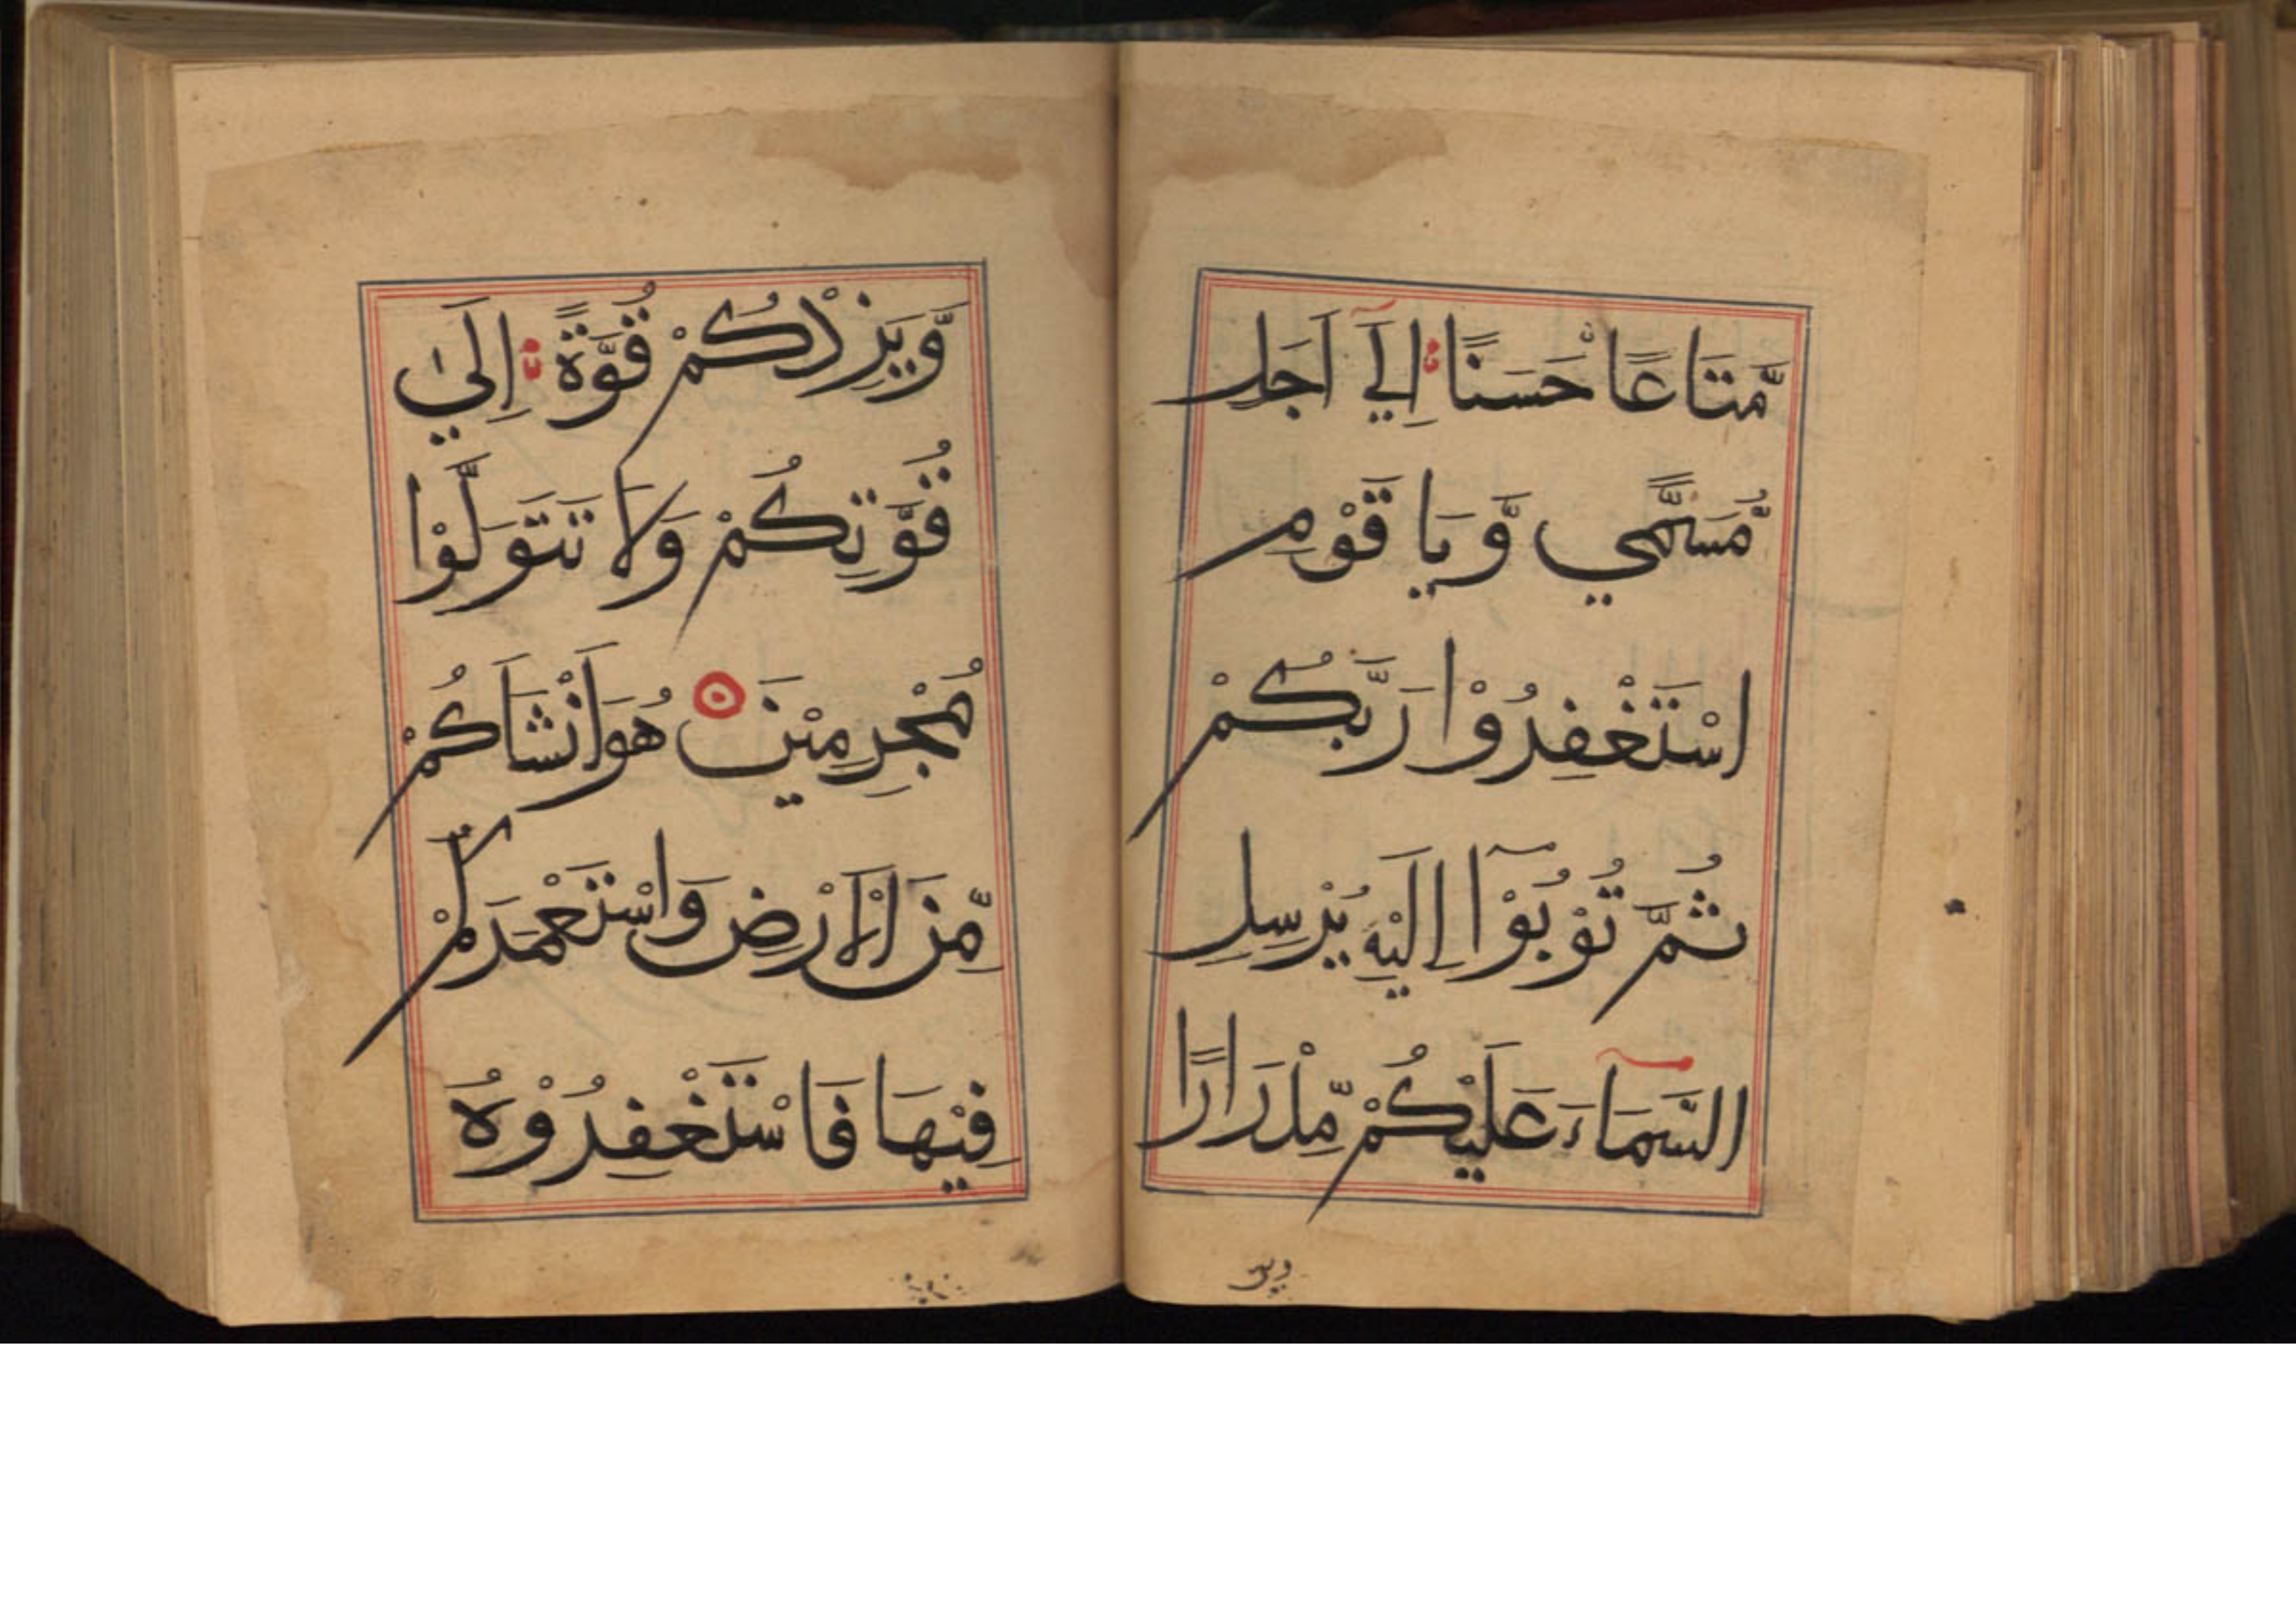 مَّتَاعًا حَسَنًا اِلَىٓ اَجَلٍ
مُّسَمًّي وَّ يَا قَوْمِ
اسْتَغْفِرُوْا رَبَّكُمْ
ثُمَّ تُوْبُوْٓا اِلَيْهِ يُرْسِلِ
السَّمَآءَ عَلَيْكُمْ مِّدْرَارًا
وَّيَزِدْكُمْ قُوَّةً اِلَىٰ
قُوَّتِكُمْ وَلَا تَتَوَلَّوْا
مُجْرِمِيْنَ هُوَ اَنْشَاَكُمْ
مِّنَ الْاَرْضِ وَاسْتَعْمَرَكُمْ
فِيْهَا فَاسْتَغْفِرُوْهُ